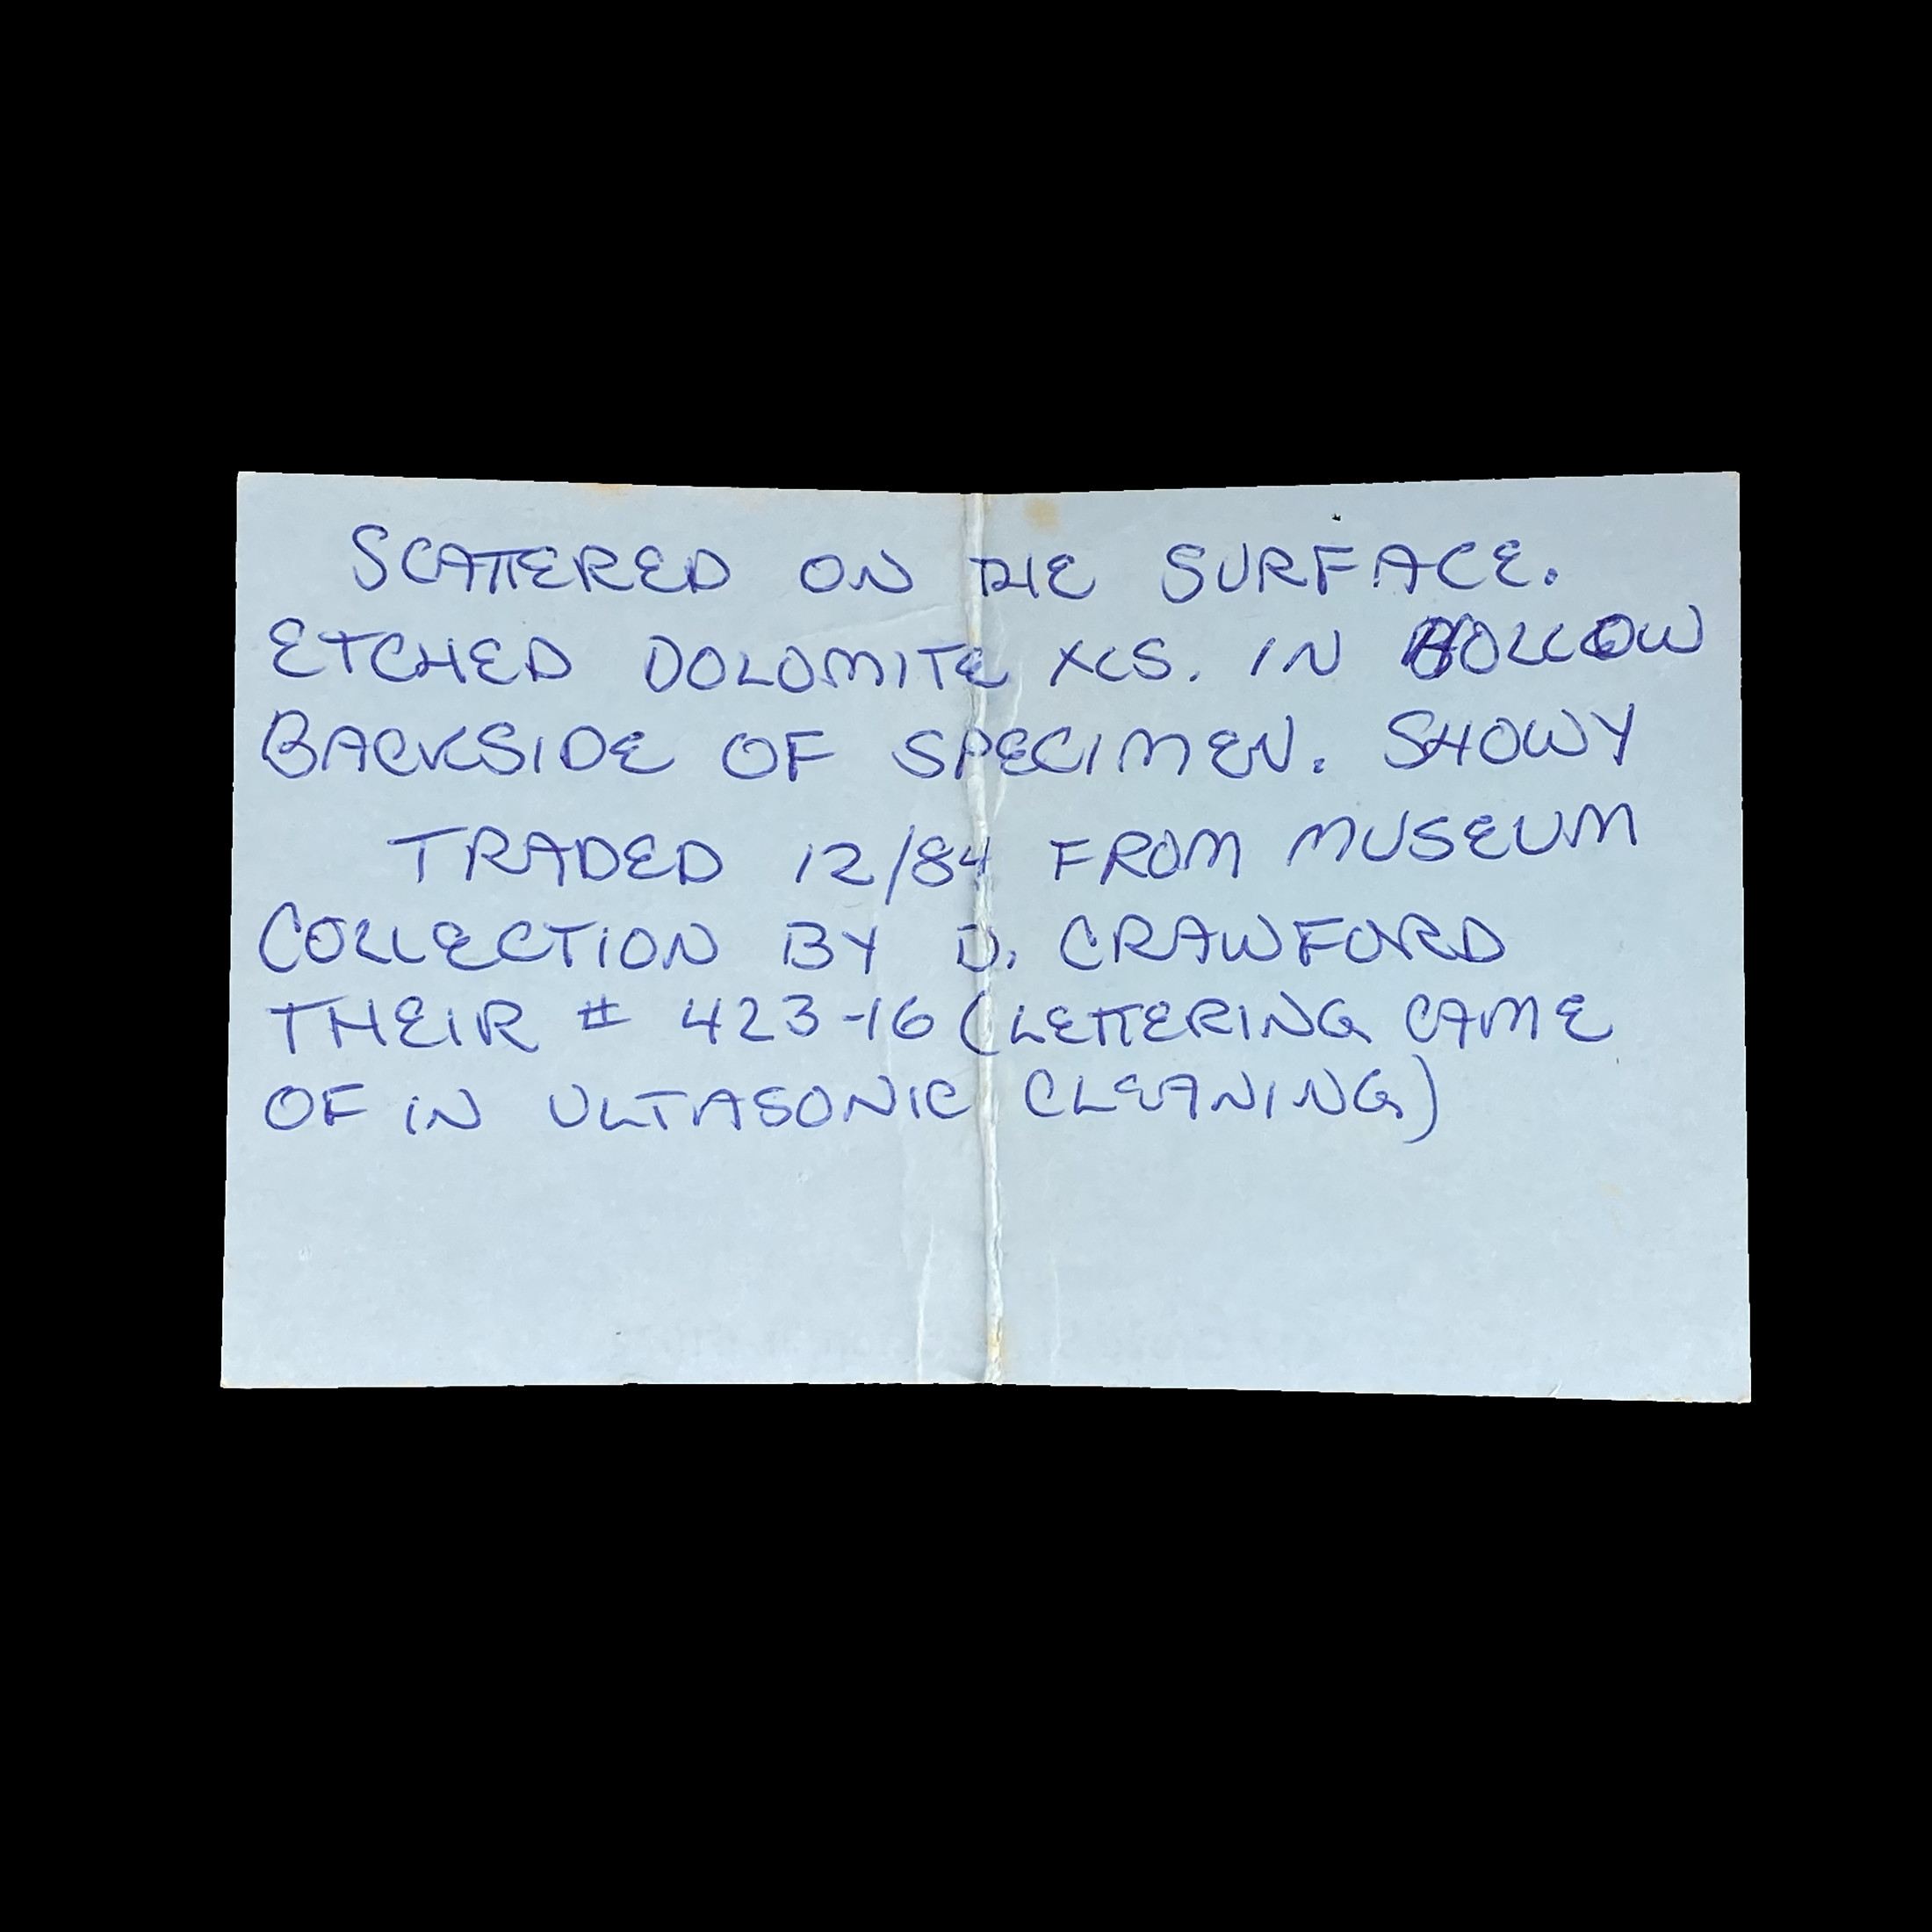 SCATTERED ON THE SURFACE.
ETCHED DOLOMITE XLS. IN HOLLOW
BACKSIDE OF SPECIMEN. SHOWY
TRADED 12/84 FROM MUSEUM
COLLECTION BY D. CRAWFORD
THEIR # 423-16 (LETTERING CAME
OF IN ULTASONIC CLEANING)